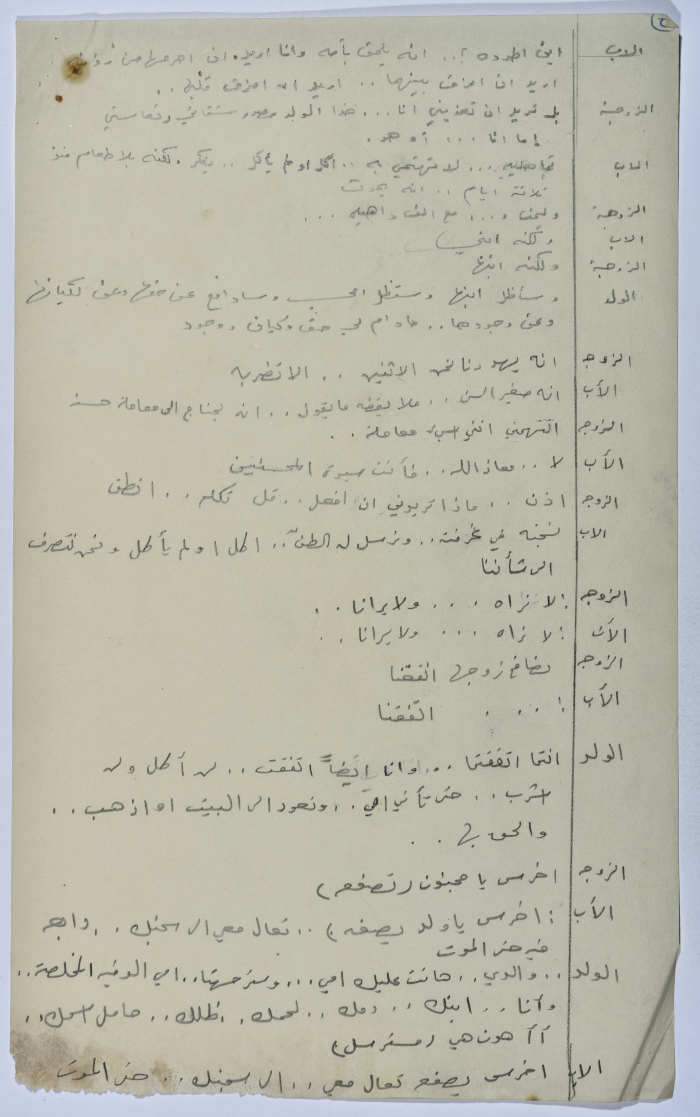 ٢
الاب اين اطرده ؟.. انه يلحق بأمه وانا اريد ان احرمها من
اريد ان افرق بينهما .. اريد ان امزق قلبه ..
الزوجة بل تريد ان تعذبني انا ... هذا الولد مصدر شقائي وتعاستي
إما انا ... أو هو .
الاب تجاهليه ... لا تهتمي به .. اكل او لم يأكل .. ولكنه بلا طعام منذ
ثلاثة ايام .. انه يموت
الزوجة وليمت ... مع الف داهيه ...
الاب ولكنه ابني
الزوجة ولكنه ابنها
الولد وسأظل ابنها وستظل امي وسادافع عن حقها وعن كيانها
وعن وجودها .. مادام لي حق وكيان ووجود
الزوجه انه يهددنا نحن الاثنين .. الا تضربه
الأب انه صغير السن .. فلا يفقه ما يقول .. انه يحتاج الى معاملة حسنة
الزوجه اتتهمني انني اسيء معاملته ..
الأب لا .. معاذ الله .. فأنت سيدة المحسنين
الزوجه اذن .. ماذا تريدني ان افعل .. قل تكلم .. انطق
الاب نسجنه في غرفته .. ونرسل له الطعام .. اكل او لم يأكل ونحن ننصرف
الى شأننا
الزوجه : لا نراه ... ولا يرانا ..
الأب : لا نراه ... ولا يرانا ..
الزوجه تصافح زوجها اتفقنا
الأب : ... اتفقنا
الولد انتما اتفقتما ... وانا ايضاً اتفقت .. لن أكل ولن
اشرب .. حتى تأتي امي .. وتعود الى البيت او اذهب ..
والحق بها ..
الزوجه اخرس يا مجنون (تصفعه)
الأب : اخرس يا ولد (يصفعه) .. تعال معي الى سجنك .. وابق
فيه حتى الموت
الولد .. والدي .. هانت عليك امي ... وستر حستها .. امي الوفيه المخلصة ..
وأنا .. ابنك .. دمك .. لحمك .. ظلك .. حامل اسمك ..
أأ هون هي (مسترسل)
الاب اخرس يصفعه تعال معي .. الى سجنك .. حتى الموت